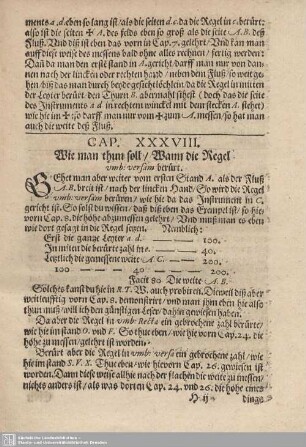 mentes a.d. eben so lang ist / als die seiten d.c. da die Regel in c. berürt:
also ist die seiten ✠ A. des felds eben so groß als die seite A.B. deß
Fluß. Vnd diß ist eben das vorn in Cap. 7. gelehrt / Vnd kan man
auff diese weise des messens bald ohne alles rechnen / fertig werden:
Daß da man den erst stand in A. gericht / darff man nur von dan-
nen nach der lincken oder rechten hand / neben dem fluß / so weit ge-
hen / biß das man durch beede geschefftlöchlein / da die Regel in mitten
der Leyter berürt den Thurn B. abermahl sihest (doch das die seite
des Instruments a d in rechtem winckel mit dem stecken A. stehet)
wie hie im ✠; so darff man nur vom ✠ zum A. messen / so hat man
auch die weite deß Fluß.
CAP. XXXVIII.
Wie man thun soll / Wann die Regel
vmb: versam berürt.
GEhet man aber weiter vom ersten Stand A. als der Fluß
A.B. breit ist / nach der lincken Hand / So wird die Regel
vmb: versam berüren / wie hie da das Instrument in C.
gericht ist. So solst du wissen / daß diß eben das Exempel ist / so hie-
vorn Cap. 8. die höhe abzumessen gelehrt / Vnd muß man es eben
wie dort gesagt in die Regel setzen. Nemblich:
Erst die gantze Leyter a d. — 100.
In mitten die berürte zahl hie. — 40.
Letzlich die gemessene weite A C. — 200.
100 — 40 — 200.
Facit 80 Die weite A.B.
Solches kanst du hie in R.T.W. auch probieren. Die weil diß aber
weitleufftig vorn Cap. 8. demonstrirt / vnd man jhm eben hie also
thun muß / will ich den günstigen Leser / dahin gewiesen haben.
Da aber die Regel in vmb: Recta ein gebrochene zahl berürte /
wie hie im stand O. vnd V. So thue eben / wie hie vorn Cap. 24. die
höhe zu messen gewiesen worden ist.
Berürt aber die Regel in vmb: versa ein gebrochene zahl / wie
hie im stand S.V.X. Thue eben / wie hievorn Cap. 26. gewiesen ist
worden. Dann diese weise allhie nach der flachen die weite zu messen /
nichts anders ist / als was dort en Cap. 24. vnd 26. die höhe eines
H ij
dings